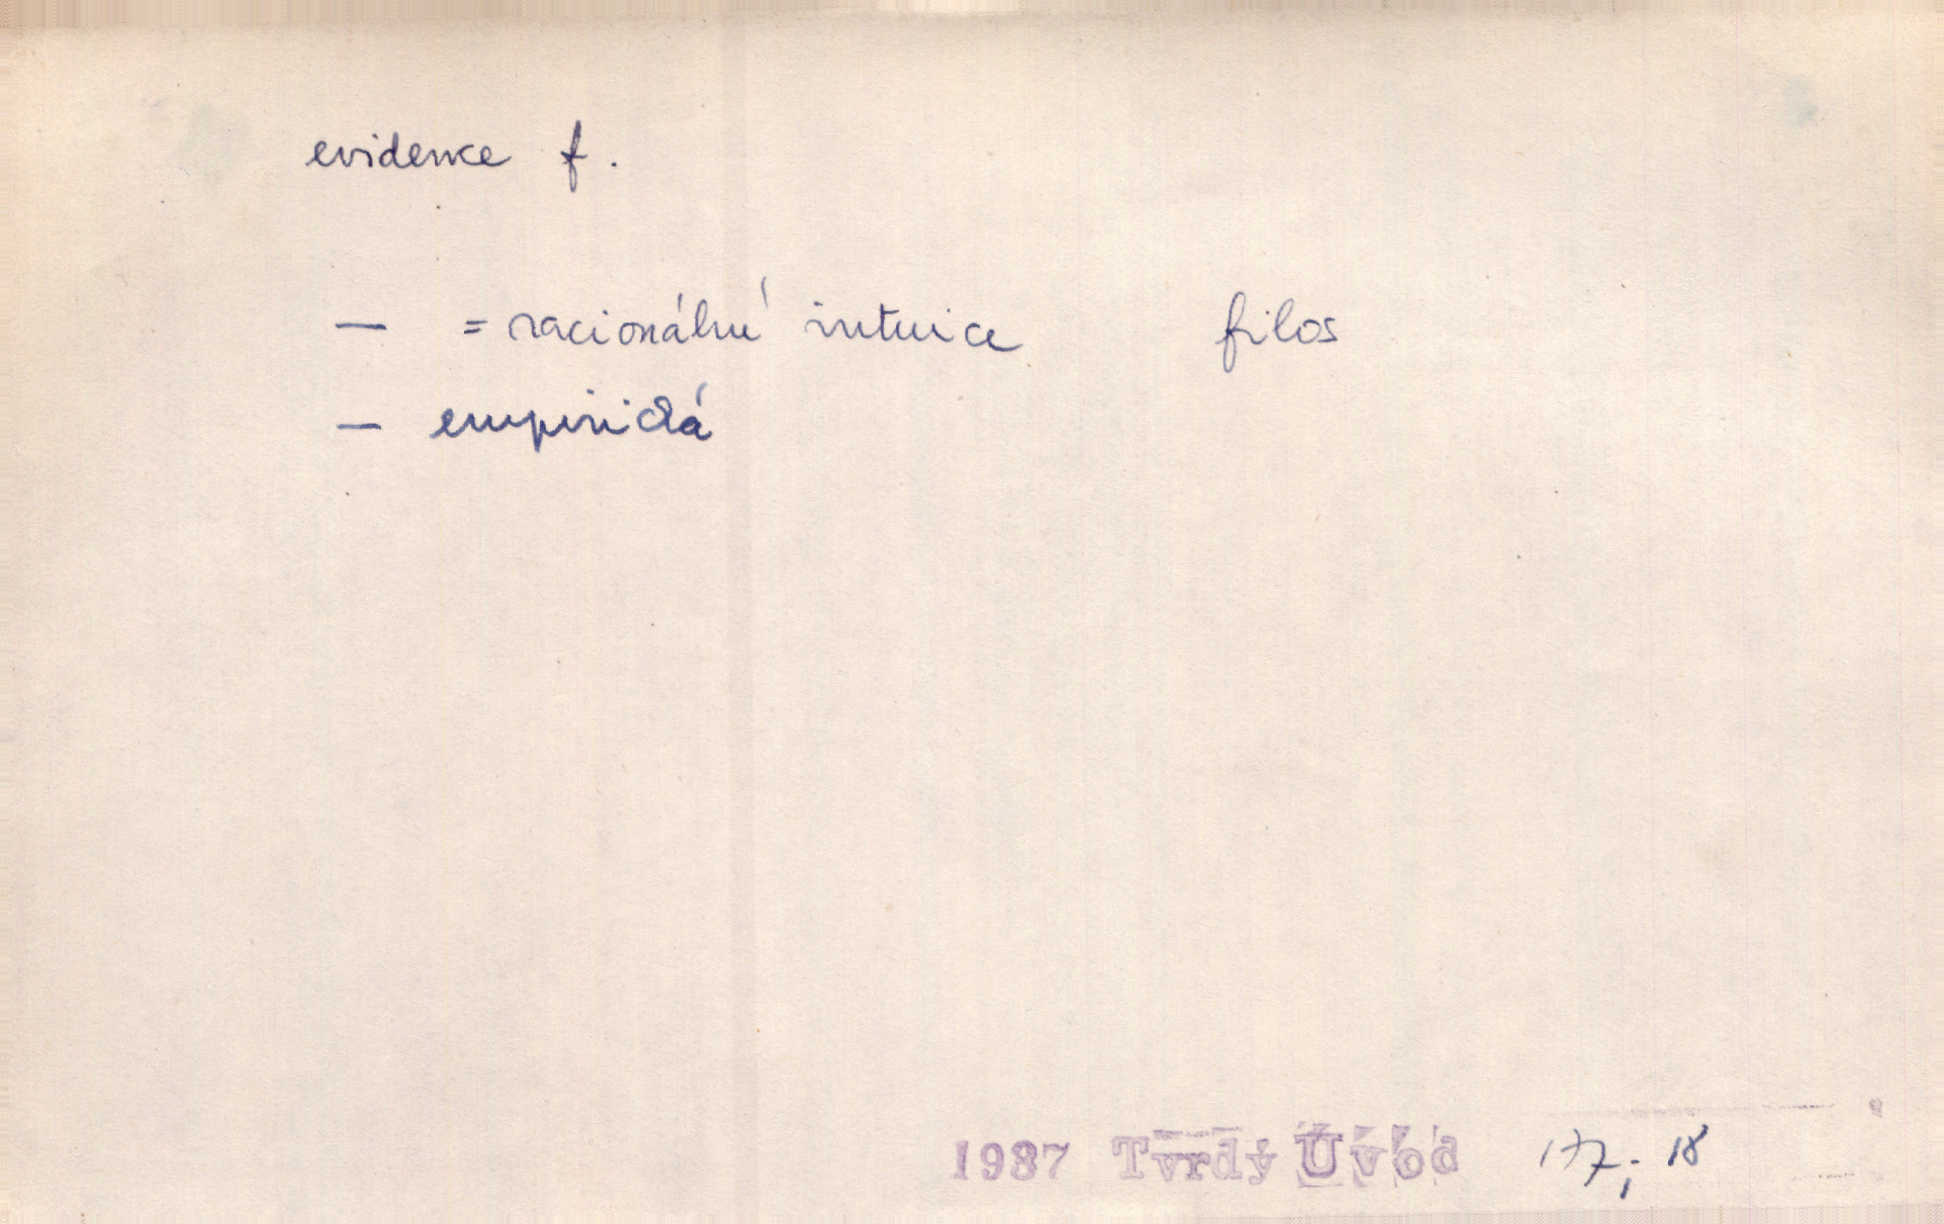 evidence f.
— = racionální intuice filos
— empirická
1937 Tvrdý Úvod 17; 18